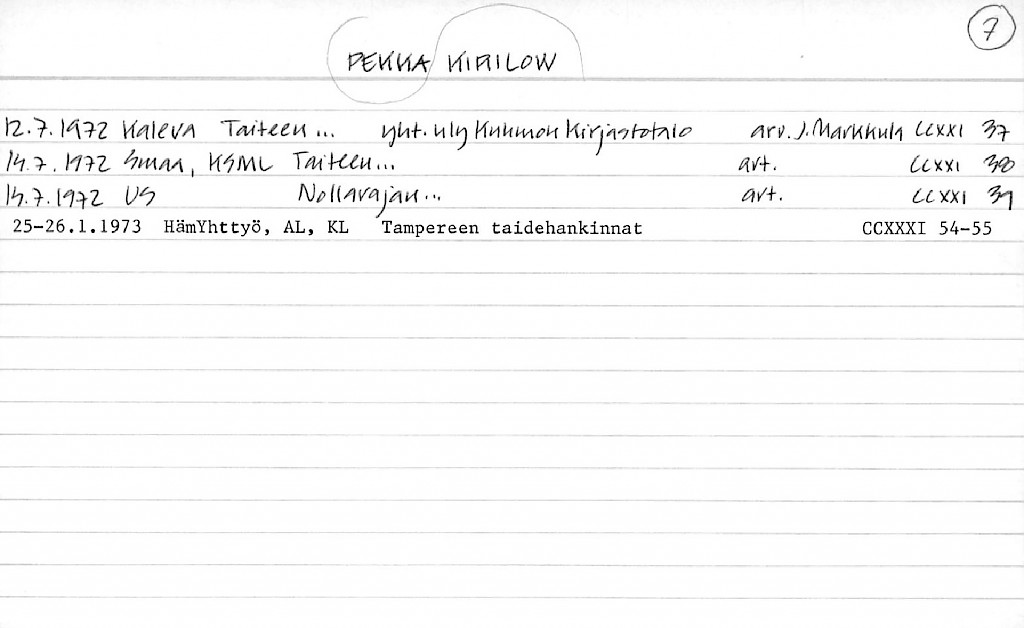 7
PEKKA KIRILOW
12.7.1972 Kaleva Taiteen... yht. näy Kuhmon Kirjastotalo arv. J. Markkula CCXXI 37
14.7.1972 Smaa, KSML Taiteen... art. CCXXI 38
15.7.1972 US Nollarajan... art. CCXXI 39
25-26.1.1973 HämYhttyö, AL, KL Tampereen taidehankinnat CCXXXI 54-55